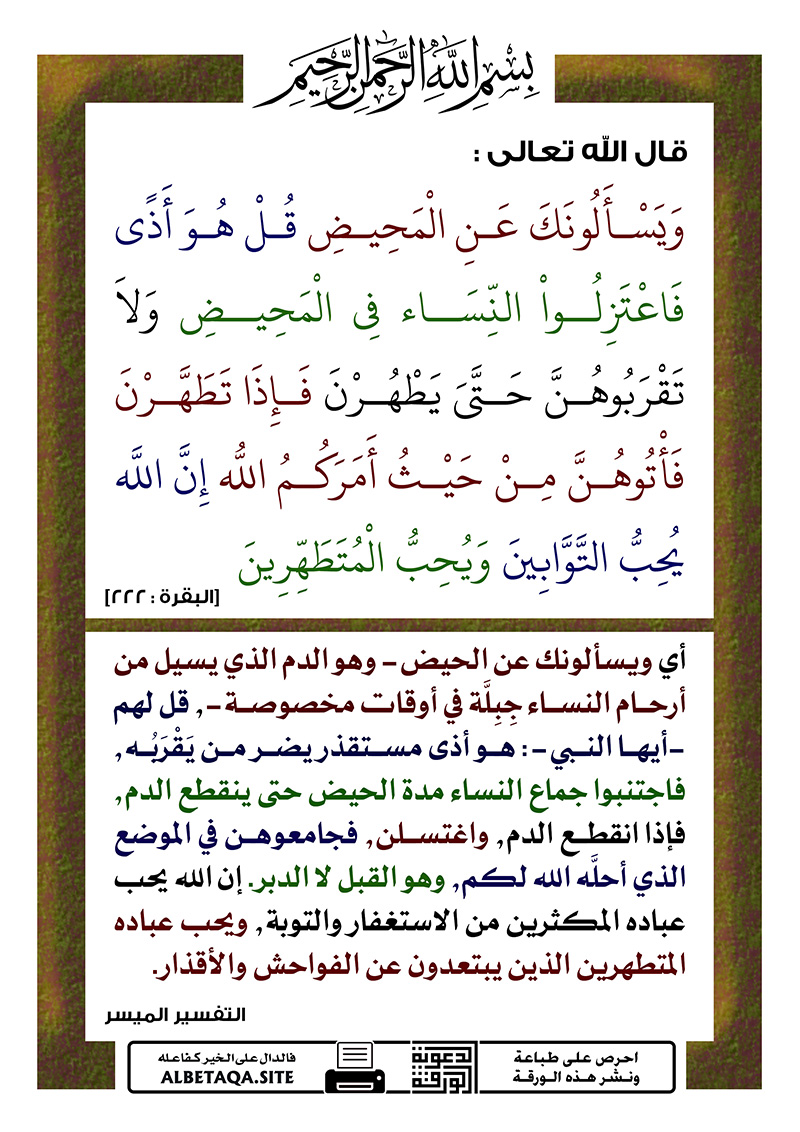 بِسْمِ اللَّهِ الرَّحْمَٰنِ الرَّحِيمِ
قال الله تعالى :
وَيَسْأَلُونَكَ عَنِ الْمَحِيضِ قُلْ هُوَ أَذًى
فَاعْتَزِلُواْ النِّسَاء فِي الْمَحِيضِ وَلاَ
تَقْرَبُوهُنَّ حَتَّىَ يَطْهُرْنَ فَإِذَا تَطَهَّرْنَ
فَأْتُوهُنَّ مِنْ حَيْثُ أَمَرَكُمُ اللّهُ إِنَّ اللّهَ
يُحِبُّ التَّوَّابِينَ وَيُحِبُّ الْمُتَطَهِّرِينَ
[البقرة : ٢٢٢]
أي ويسألونك عن الحيض - وهو الدم الذي يسيل من
أرحام النساء جِبِلَّة في أوقات مخصوصة -, قل لهم
-أيها النبي -: هو أذى مستقذر يضر من يَقْرَبُه,
فاجتنبوا جماع النساء مدة الحيض حتى ينقطع الدم,
فإذا انقطع الدم, واغتسلن, فجامعوهن في الموضع
الذي أحلَّه الله لكم, وهو القبل لا الدبر. إن الله يحب
عباده المكثرين من الاستغفار والتوبة, ويحب عباده
المتطهرين الذين يبتعدون عن الفواحش والأقذار.
التفسير الميسر
احرص على طباعة
ونشر هذه الورقة
الورقة
الدعوية
فالدال على الخير كفاعله
ALBETAQA.SITE